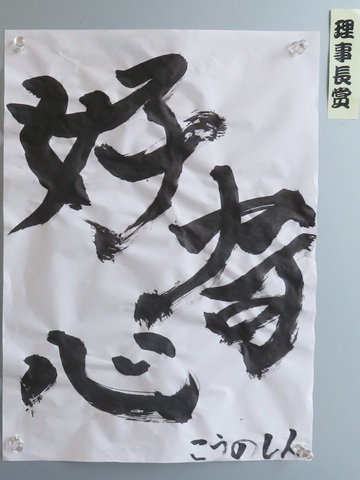 理事長賞
好奇心
こうのしん